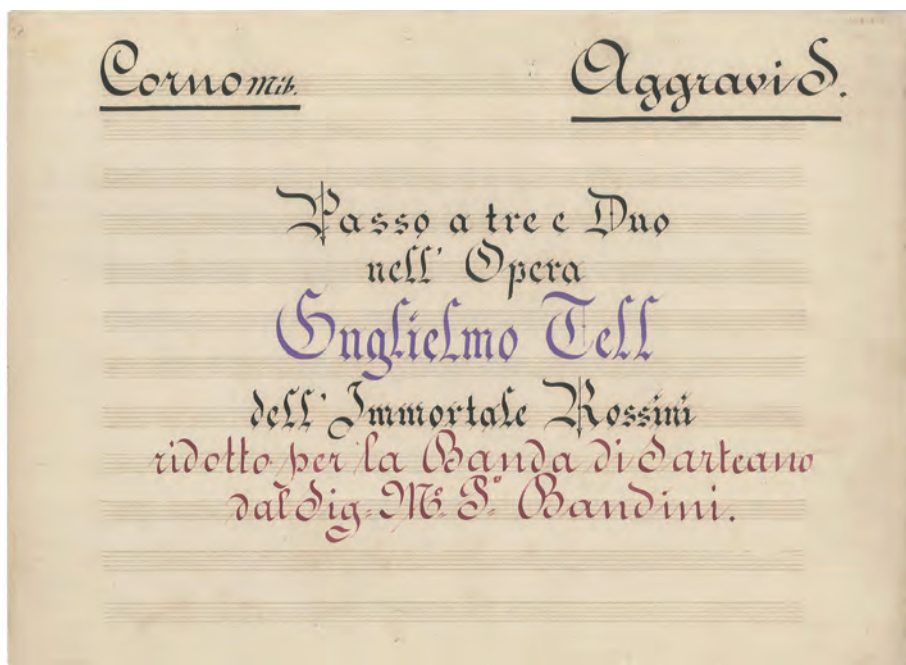 Corno Mib. Aggravi S.
Passo a tre e Duo
nell' Opera
Guglielmo Tell
dell' Immortale Rossini
ridotto per la Banda di Sarteano
dal Sig. M.º Bandini.